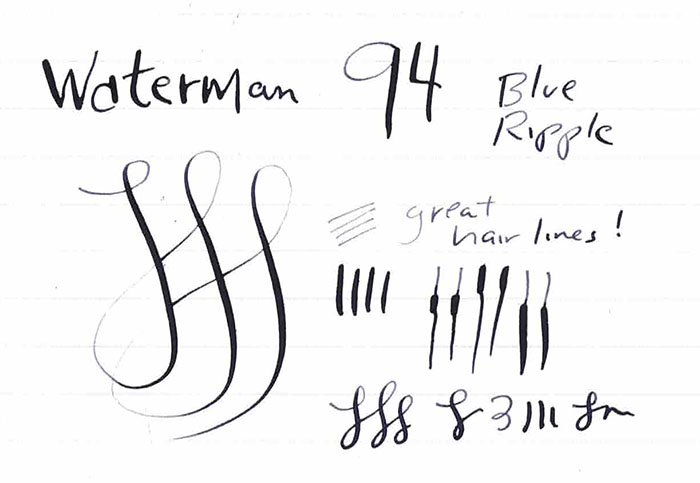 Waterman 94 Blue
Ripple
great
hair lines!